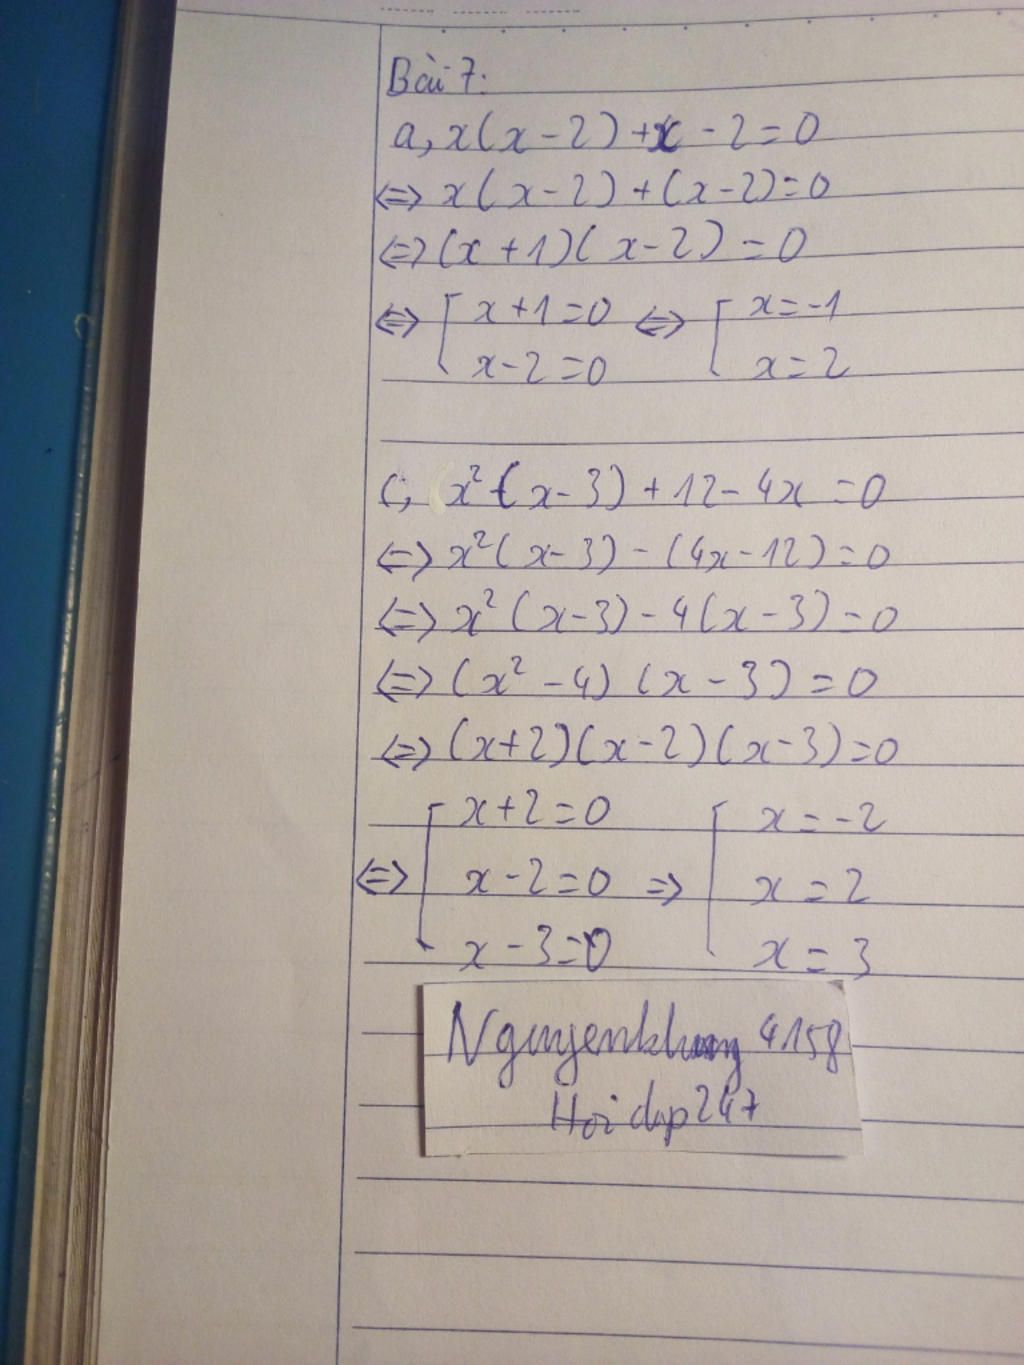 Bài 7:
a, x(x-2)+x-2=0
⇔ x(x-2)+(x-2)=0
⇔ (x+1)(x-2)=0
⇔ [ x+1=0 ⇔ [ x=-1
x-2=0 x=2
c, x²(x-3)+12-4x=0
⇔ x²(x-3)-(4x-12)=0
⇔ x²(x-3)-4(x-3)=0
⇔ (x²-4)(x-3)=0
⇔ (x+2)(x-2)(x-3)=0
[ x+2=0 [ x=-2
⇔ x-2=0 ⇒ x=2
x-3=0 x=3
Nguyenkhang 4158
Hoi dap 247